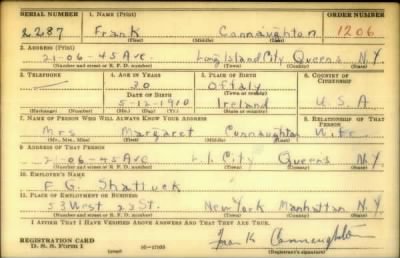 SERIAL NUMBER 1. NAME (Print) ORDER NUMBER
2287 Frank Connaughton 1206
(First) (Middle) (Last)
2. ADDRESS (Print)
21-06-45 Ave Long Island City Queens N.Y
(Number and street or R. F. D. number) (Town) (County) (State)
3. TELEPHONE 4. AGE IN YEARS 5. PLACE OF BIRTH 6. COUNTRY OF CITIZENSHIP
30 Offaly
(Town or county)
DATE OF BIRTH
5-12-1910 Ireland U.S.A
(Exchange) (Number) (Mo.) (Day) (Yr.) (State or country)
7. NAME OF PERSON WHO WILL ALWAYS KNOW YOUR ADDRESS 8. RELATIONSHIP OF THAT PERSON
Mrs Margaret Connaughton Wife
(Mr., Mrs., Miss) (First) (Middle) (Last)
9. ADDRESS OF THAT PERSON
21-06-45 Ave L.I. City Queens N.Y.
(Number and street or R. F. D. number) (Town) (County) (State)
10. EMPLOYER'S NAME
F. G. Shattuck
11. PLACE OF EMPLOYMENT OR BUSINESS
53 West 23 St. New York Manhattan N.Y.
(Number and street or R. F. D. number) (Town) (County) (State)
I AFFIRM THAT I HAVE VERIFIED ABOVE ANSWERS AND THAT THEY ARE TRUE.
REGISTRATION CARD
D. S. S. FORM 1 (over) 16-17105 Frank Connaughton
(Registrant's signature)